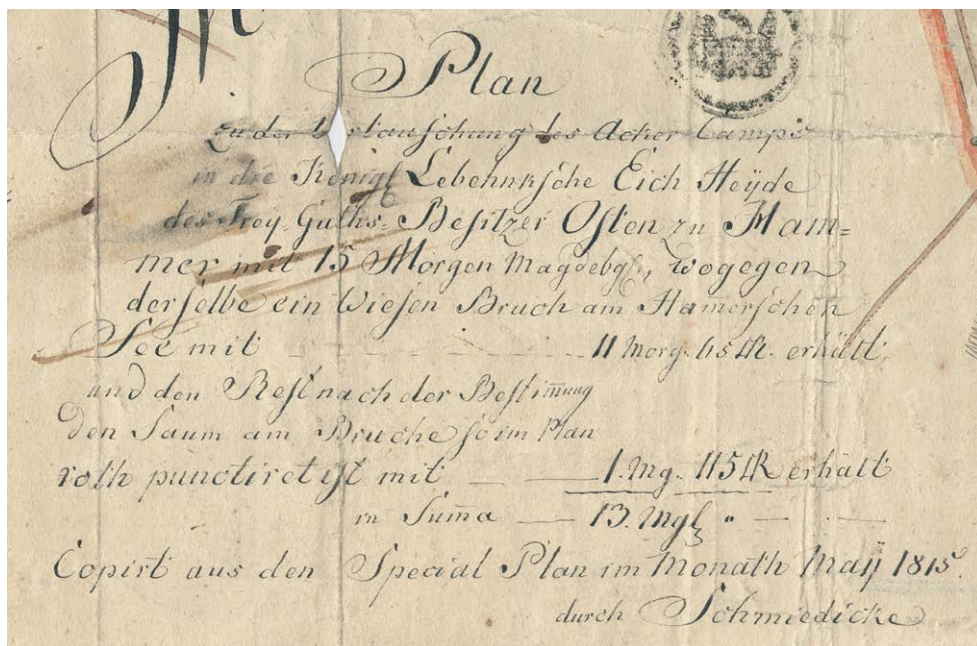 Plan
zu der Vertauschung des Acker Camps
in die Königl Lebehnksche Eich Heÿde
des Freÿ-Guths-Besitzer Osten zu Ham=
mer mit 15 Morgen Magdebgl, wogegen
derselbe ein Wiesen Bruch am Hamerschen
See mit — 11 Morg. 65 □R. erhält,
und den Rest nach der Bestim̄ung
den Saum am Bruche so im Plan
roth punctiret ist mit — 1. Mg. 115 □R erhält
in Sum̄a — 13. Mgl " —
Copirt aus den Special Plan im Monath Maÿ 1815.
durch Schmiedicke